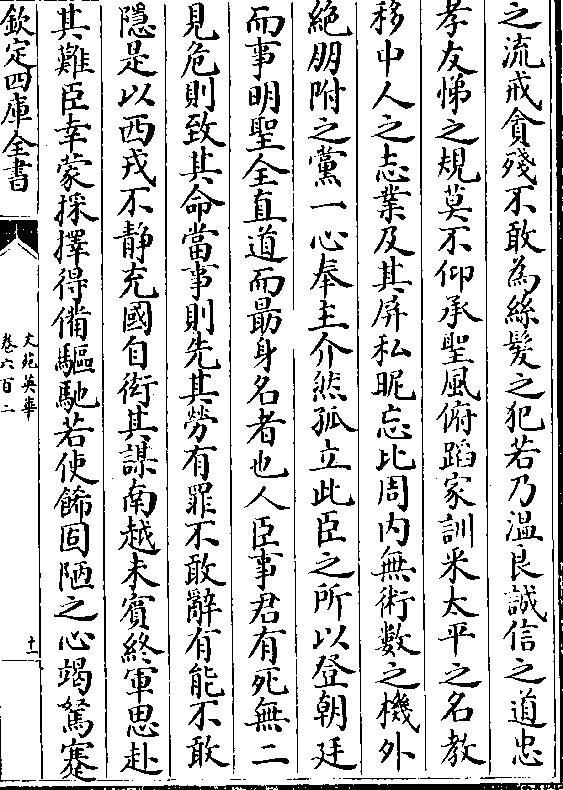 之流戒貪殘不敢為絲髮之犯若乃溫良誠信之道忠
孝友悌之規莫不仰承聖風俯蹈家訓釆太平之名教
移中人之志業及其屏私昵忘比周内無術數之機外
絶朋附之黨一心奉主介然孤立此臣之所以登朝廷
而事明聖全直道而勗身名者也人臣事君有死無二
見危則致其命當事則先其勞有罪不敢辭有能不敢
隱是以西戎不静充國自衒其謀南越未賓終軍思赴
其難臣幸蒙採擇得備驅馳若使飾固陋之心竭駑蹇
欽定四庫全書
文苑英華
卷六百二
十一